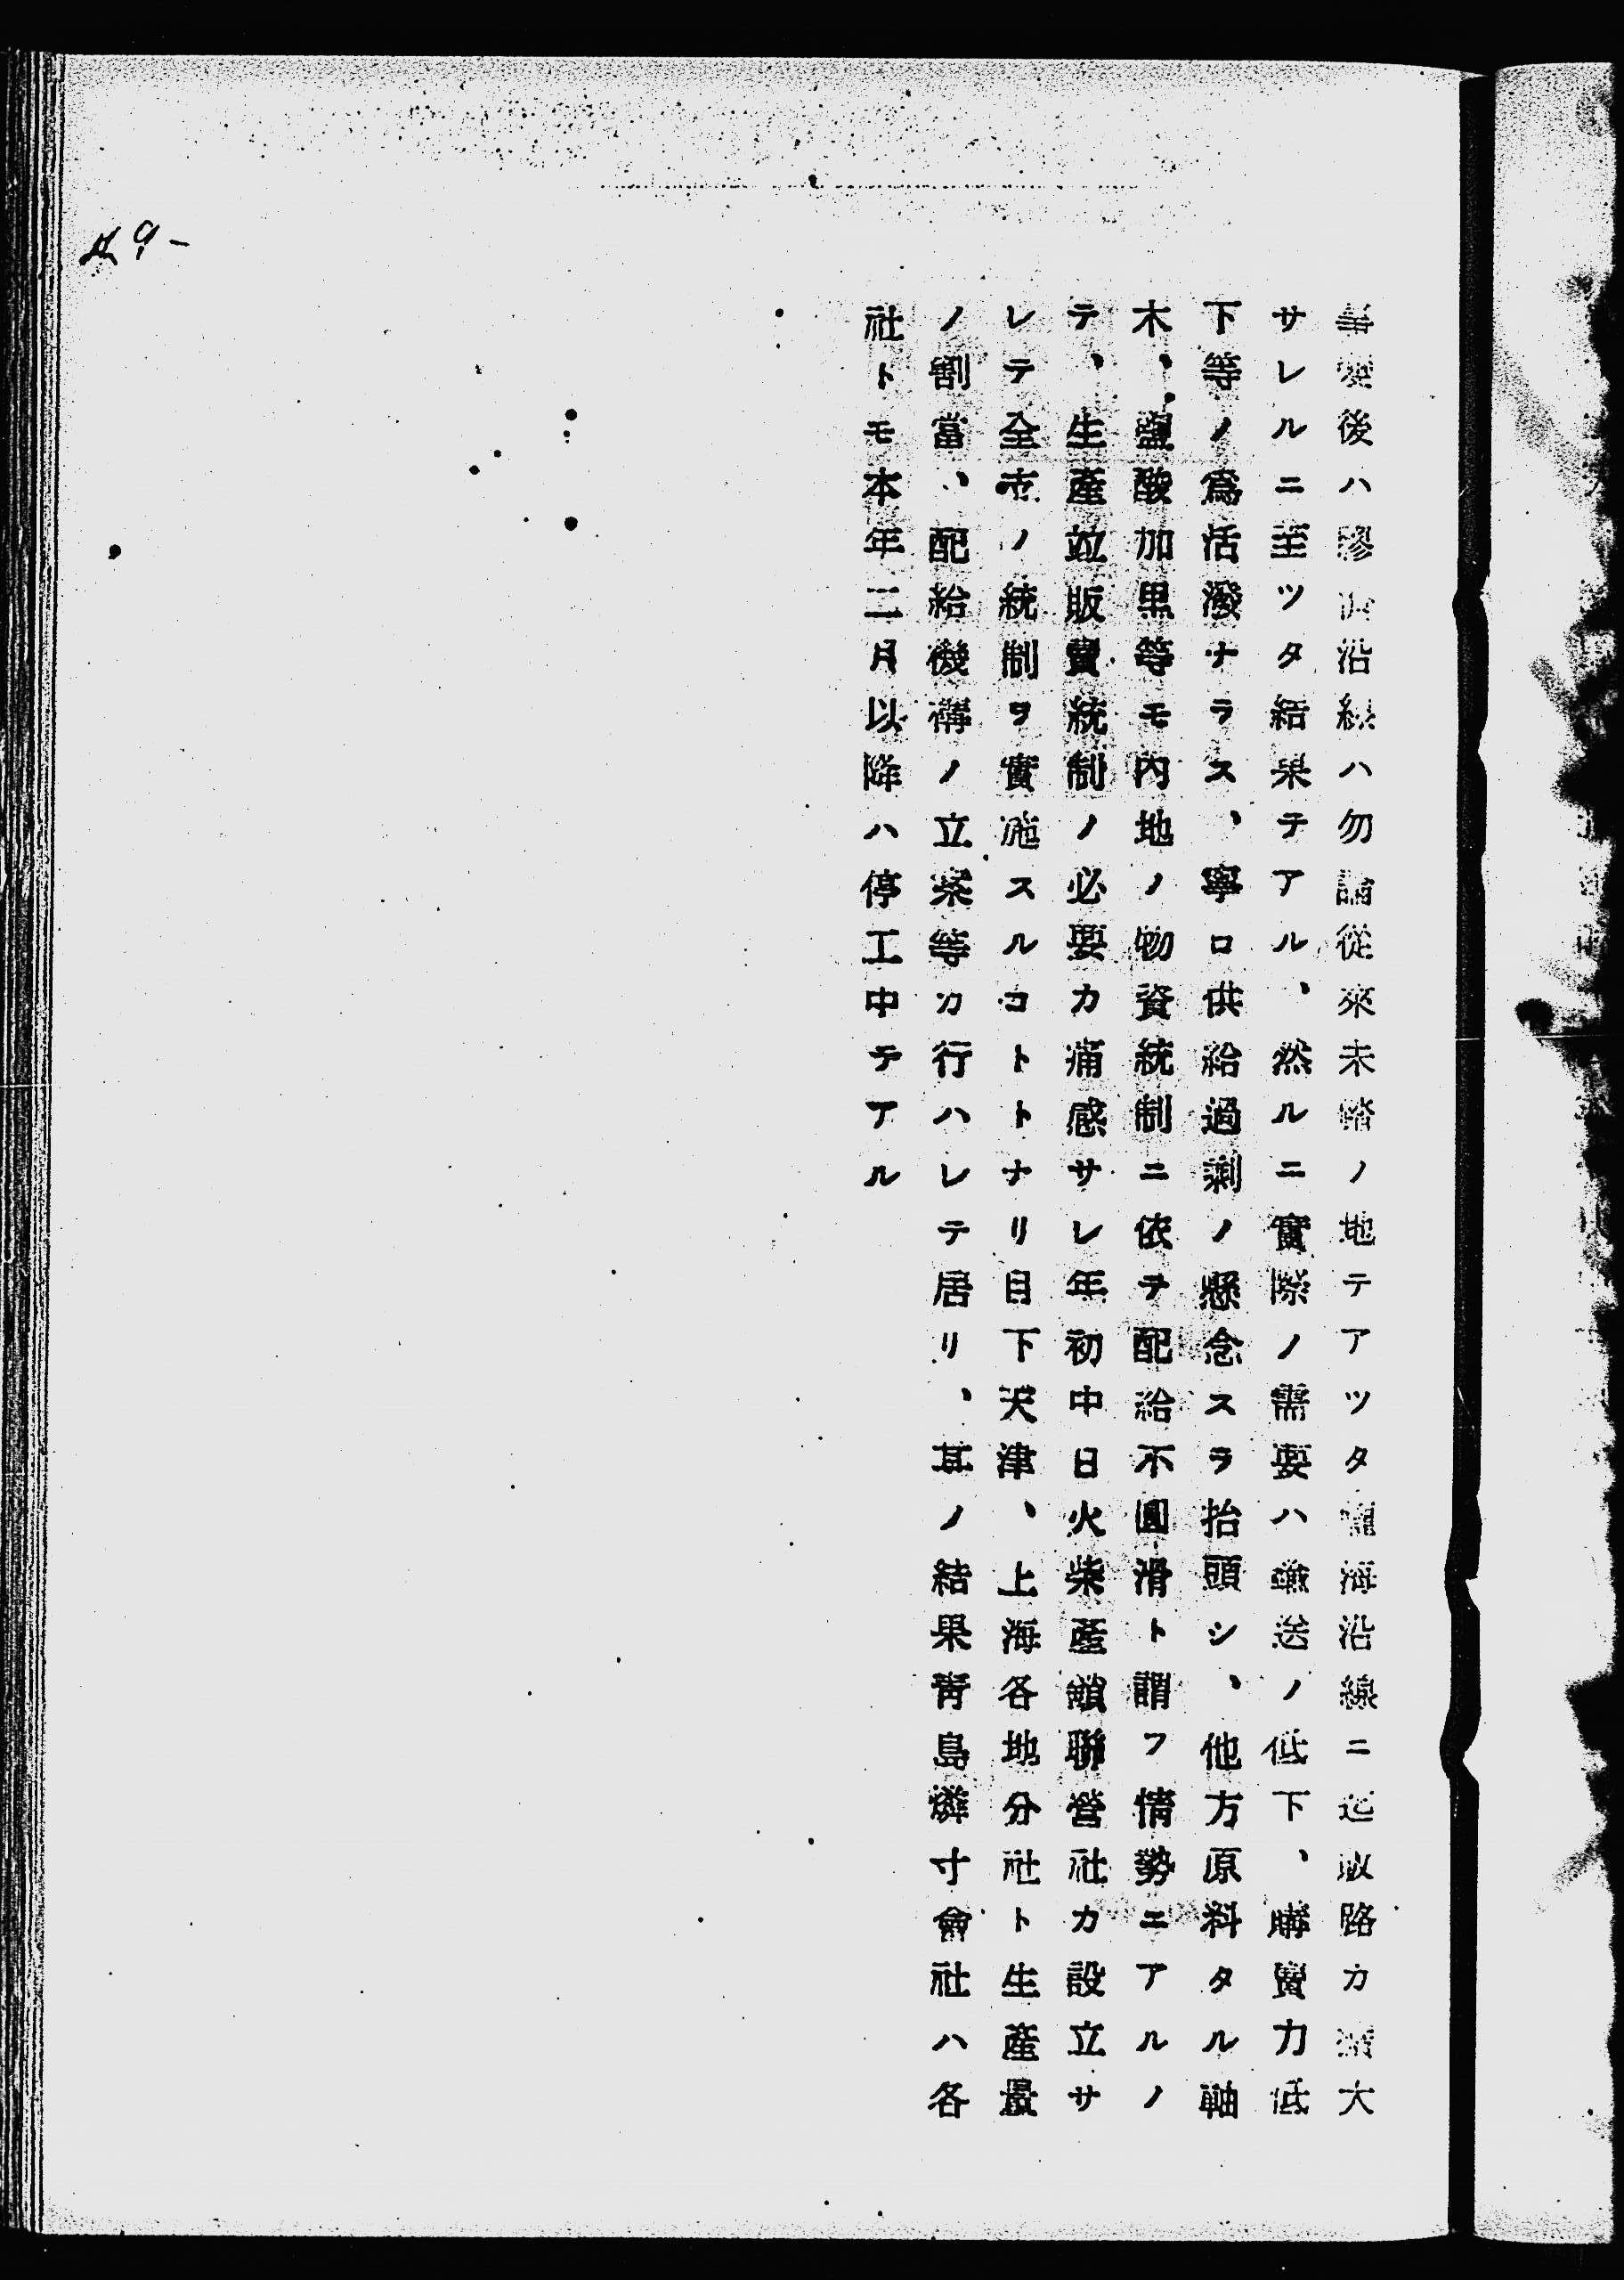 事變後ハ膠濟沿線ハ勿論從來未踏ノ地テアツタ隴海沿線ニ迄販路カ擴大
サレルニ至ツタ結果テアル、然ルニ實際ノ需要ハ輸送ノ低下、購買力低
下等ノ爲活潑ナラス、寧ロ供給過剩ノ懸念スラ抬頭シ、他方原料タル軸
木、鹽酸加里等モ內地ノ物資統制ニ依テ配給不圓滑ト謂フ情勢ニアルノ
テ、生產並販賣統制ノ必要カ痛感サレ年初中日火柴產銷聯營社カ設立サ
レテ全市ノ統制ヲ實施スルコトトナリ目下天津、上海各地分社ト生產量
ノ割當、配給機構ノ立案等カ行ハレテ居リ、其ノ結果靑島燐寸會社ハ各
社トモ本年二月以降ハ停工中テアル